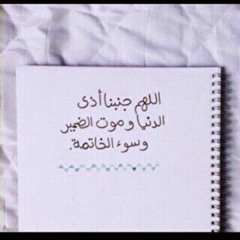 اللهم جنبنا أذى
الدنيا وموت الضمير
وسوء الخاتمة.